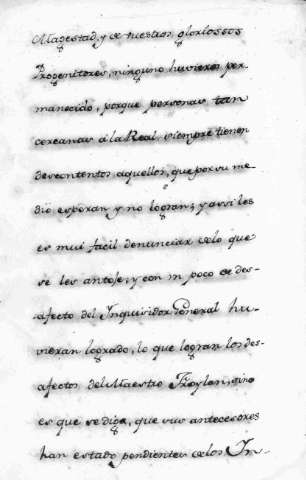 Magestad, y de nuestros gloriosos
Progenitores, ninguno huvieran per
manecido, porque personas tan
cercanas á la Real, siempre tienen
descontentos aquellos, que por su me
dio esperan y no logran; y assi les
es mui facil denunciar de lo que
se les antoje, y con un poco de des-
afecto del Inquisidor General hu-
vieran logrado, lo que logran los des-
afectos del Maestro Froylan, sino
es que se diga, que sus antecesores
han estado pendientes de los In-